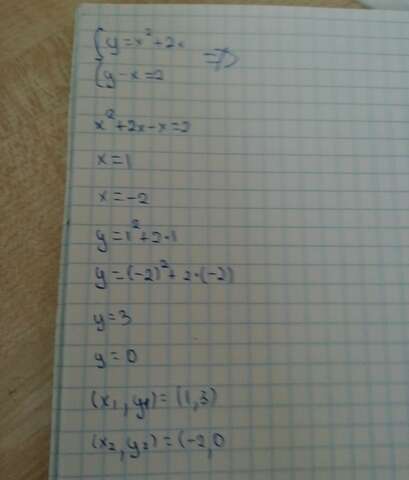 {y=x²+2x
{y-x=2 =>
x²+2x-x=2
x=1
x=-2
y=1²+2·1
y=(-2)²+2·(-2)
y=3
y=0
(x₁,y₁)=(1,3)
(x₂,y₂)=(-2,0